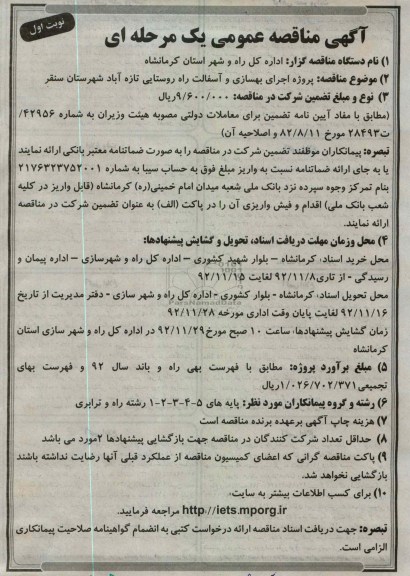 نوبت اول
آگهی مناقصه عمومی یک مرحله ای
۱) نام دستگاه مناقصه گزار: اداره کل راه و شهر استان کرمانشاه
۲) موضوع مناقصه: پروژه اجرای بهسازی و آسفالت راه روستایی تازه آباد شهرستان سنقر
۳) نوع و مبلغ تضمین شرکت در مناقصه: ۹/۶۰۰/۰۰۰ریال
(مطابق با مفاد آیین نامه تضمین برای معاملات دولتی مصوبه هیئت وزیران به شماره ۴۲۹۵۶/
ت۲۸۴۹۳ مورخ ۸۲/۸/۱۱ و اصلاحیه آن)
تبصره: پیمانکاران موظفند تضمین شرکت در مناقصه را به صورت ضمانتنامه معتبر بانکی ارائه نمایند
یا به جای ارائه ضمانتنامه نسبت به واریز مبلغ فوق به حساب سیبا به شماره ۲۱۷۶۳۲۳۷۵۲۰۰۱
بنام تمرکز وجوه سپرده نزد بانک ملی شعبه میدان امام خمینی(ره) کرمانشاه (قابل واریز در کلیه
شعب بانک ملی) اقدام و فیش واریزی آن را در پاکت (الف) به عنوان تضمین شرکت در مناقصه
ارائه نمایند.
۴) محل وزمان مهلت دریافت اسناد، تحویل و گشایش پیشنهادها:
محل خرید اسناد، کرمانشاه – بلوار شهید کشوری – اداره کل راه و شهرسازی – اداره پیمان و
رسیدگی - از تاری۹۲/۱۱/۸ لغایت ۹۲/۱۱/۱۵
محل تحویل اسناد، کرمانشاه - بلوار کشوری - اداره کل راه و شهر سازی - دفتر مدیریت از تاریخ
۹۲/۱۱/۱۶ لغایت پایان وقت اداری مورخه ۹۲/۱۱/۲۸
زمان گشایش پیشنهادها، ساعت ۱۰ صبح مورخ۹۲/۱۱/۲۹ در اداره کل راه و شهر سازی استان
کرمانشاه
۵) مبلغ برآورد پروژه: مطابق با فهرست بهی راه و باند سال ۹۲ و فهرست بهای
تجمیعی۱/۰۲۶/۷۰۲/۳۷۱ریال
۶) رشته و گروه پیمانکاران مورد نظر: پایه های ۵-۴-۳-۲-۱ رشته راه و ترابری
۷) هزینه چاپ آگهی برعهده برنده مناقصه است
۸) حداقل تعداد شرکت کنندگان در مناقصه جهت بازگشایی پیشنهادها ۲مورد می باشد
۹) پاکت مناقصه گرانی که اعضای کمیسیون مناقصه از عملکرد قبلی آنها رضایت نداشته باشند
بازگشایی نخواهد شد.
۱۰) برای کسب اطلاعات بیشتر به سایت،
http://iets.mporg.ir مراجعه فرمایید.
تبصره: جهت دریافت اسناد مناقصه ارائه درخواست کتبی به انضمام گواهینامه صلاحیت پیمانکاری
الزامی است.